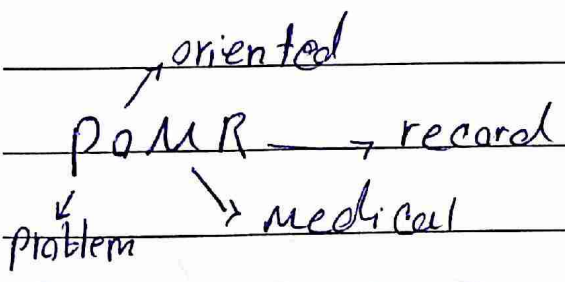 oriented
POMR → record
medical
problem